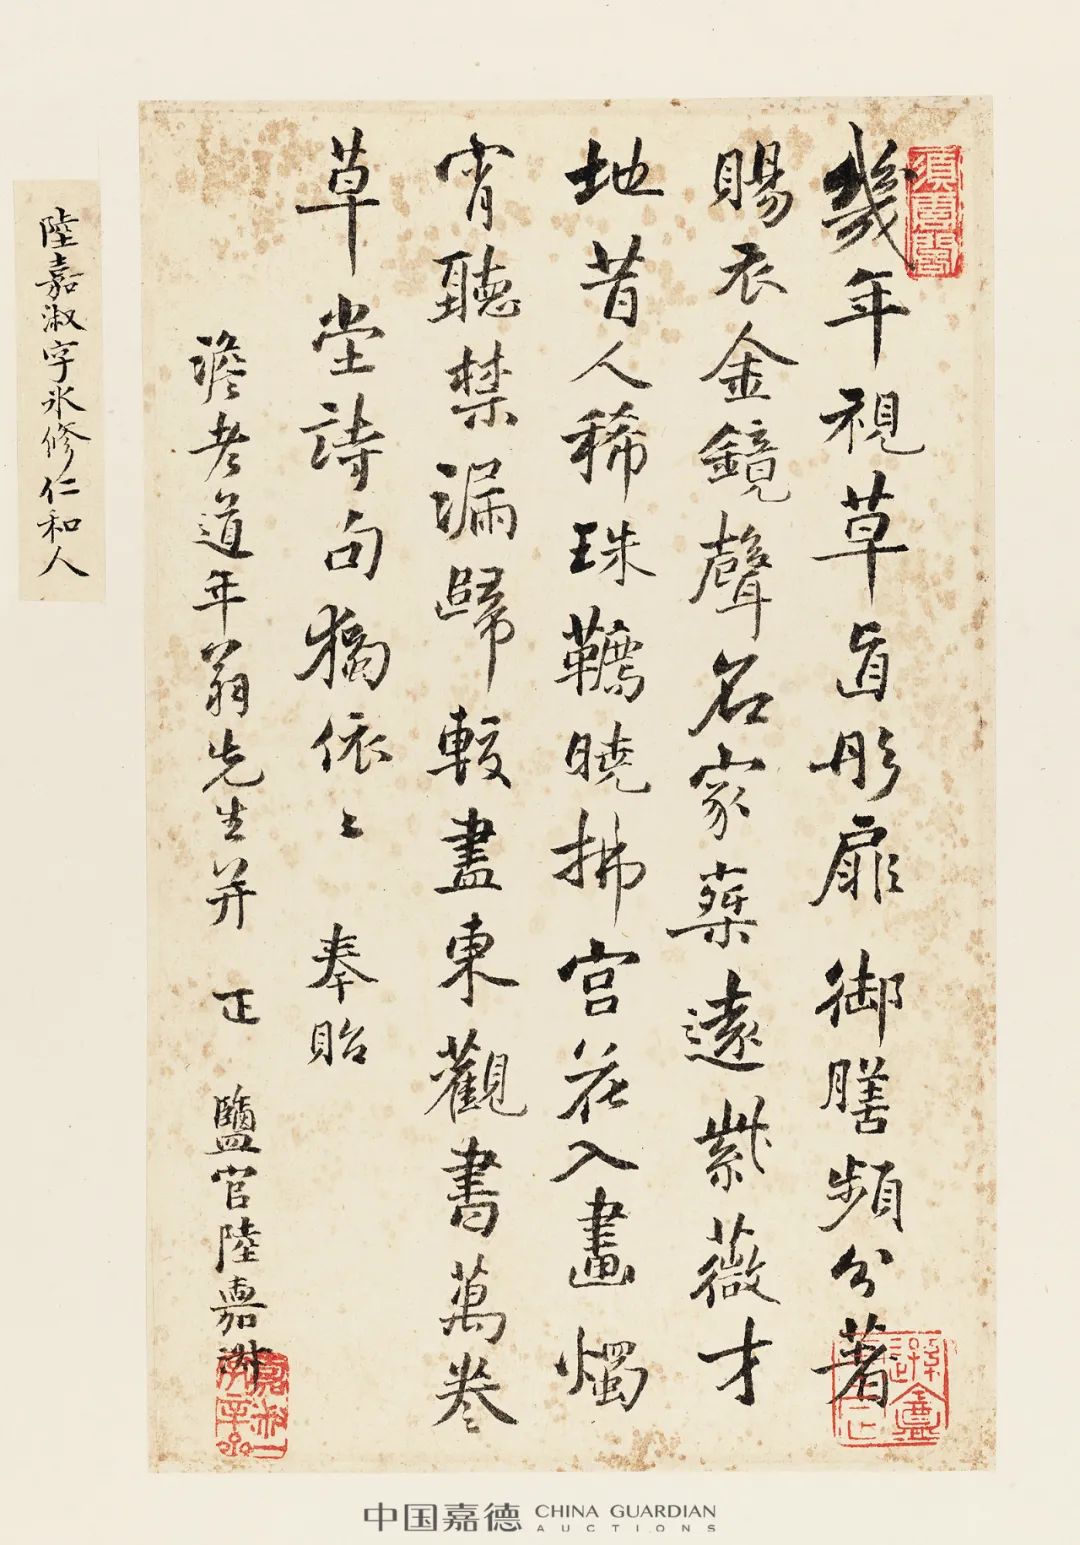 幾年視草直彤扉御膳頻分著
賜衣金鏡聲名家業遠紫薇才
地昔人稀珠韉曉拂宮花入畫燭
宵聽禁漏歸較盡東觀書萬卷
草堂詩句獨依〻 奉貽
澹老道年翁先生并 正 鹽官陸嘉淑
陸嘉淑字氷修仁和人
中国嘉德 CHINA GUARDIAN
AUCTIONS